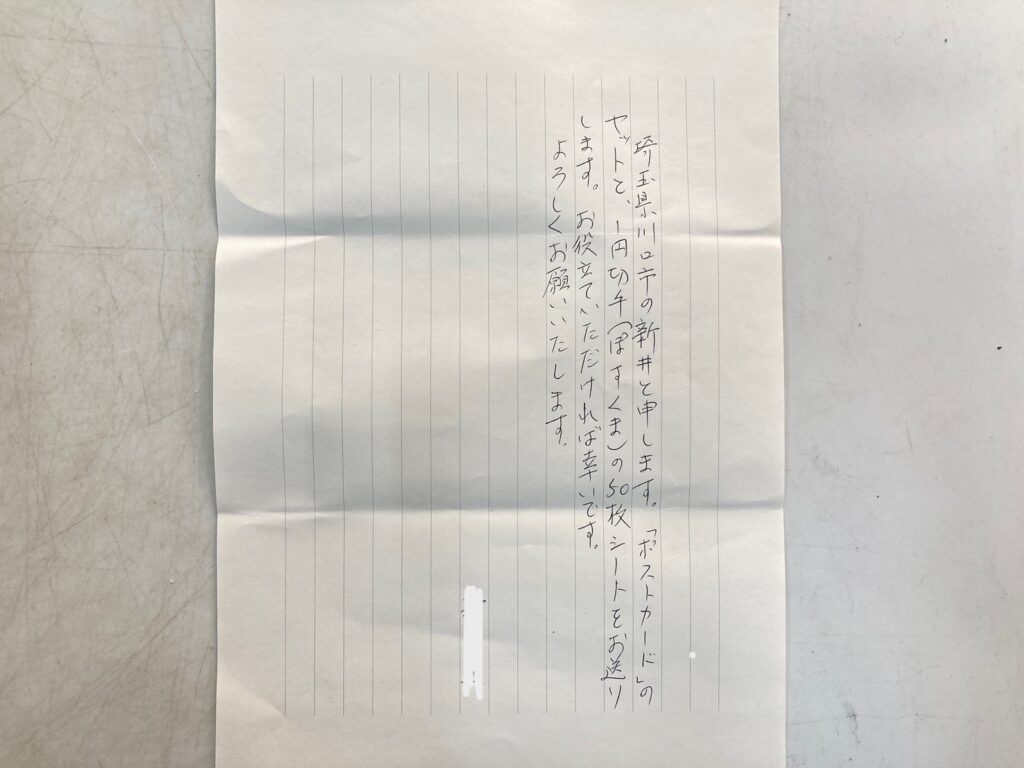 埼玉県川口市の新井と申します。「ポストカード」の
セットと、1円切手(ぽすくま)の50枚シートをお送り
します。お役立ていただければ幸いです。
よろしくお願いいたします。